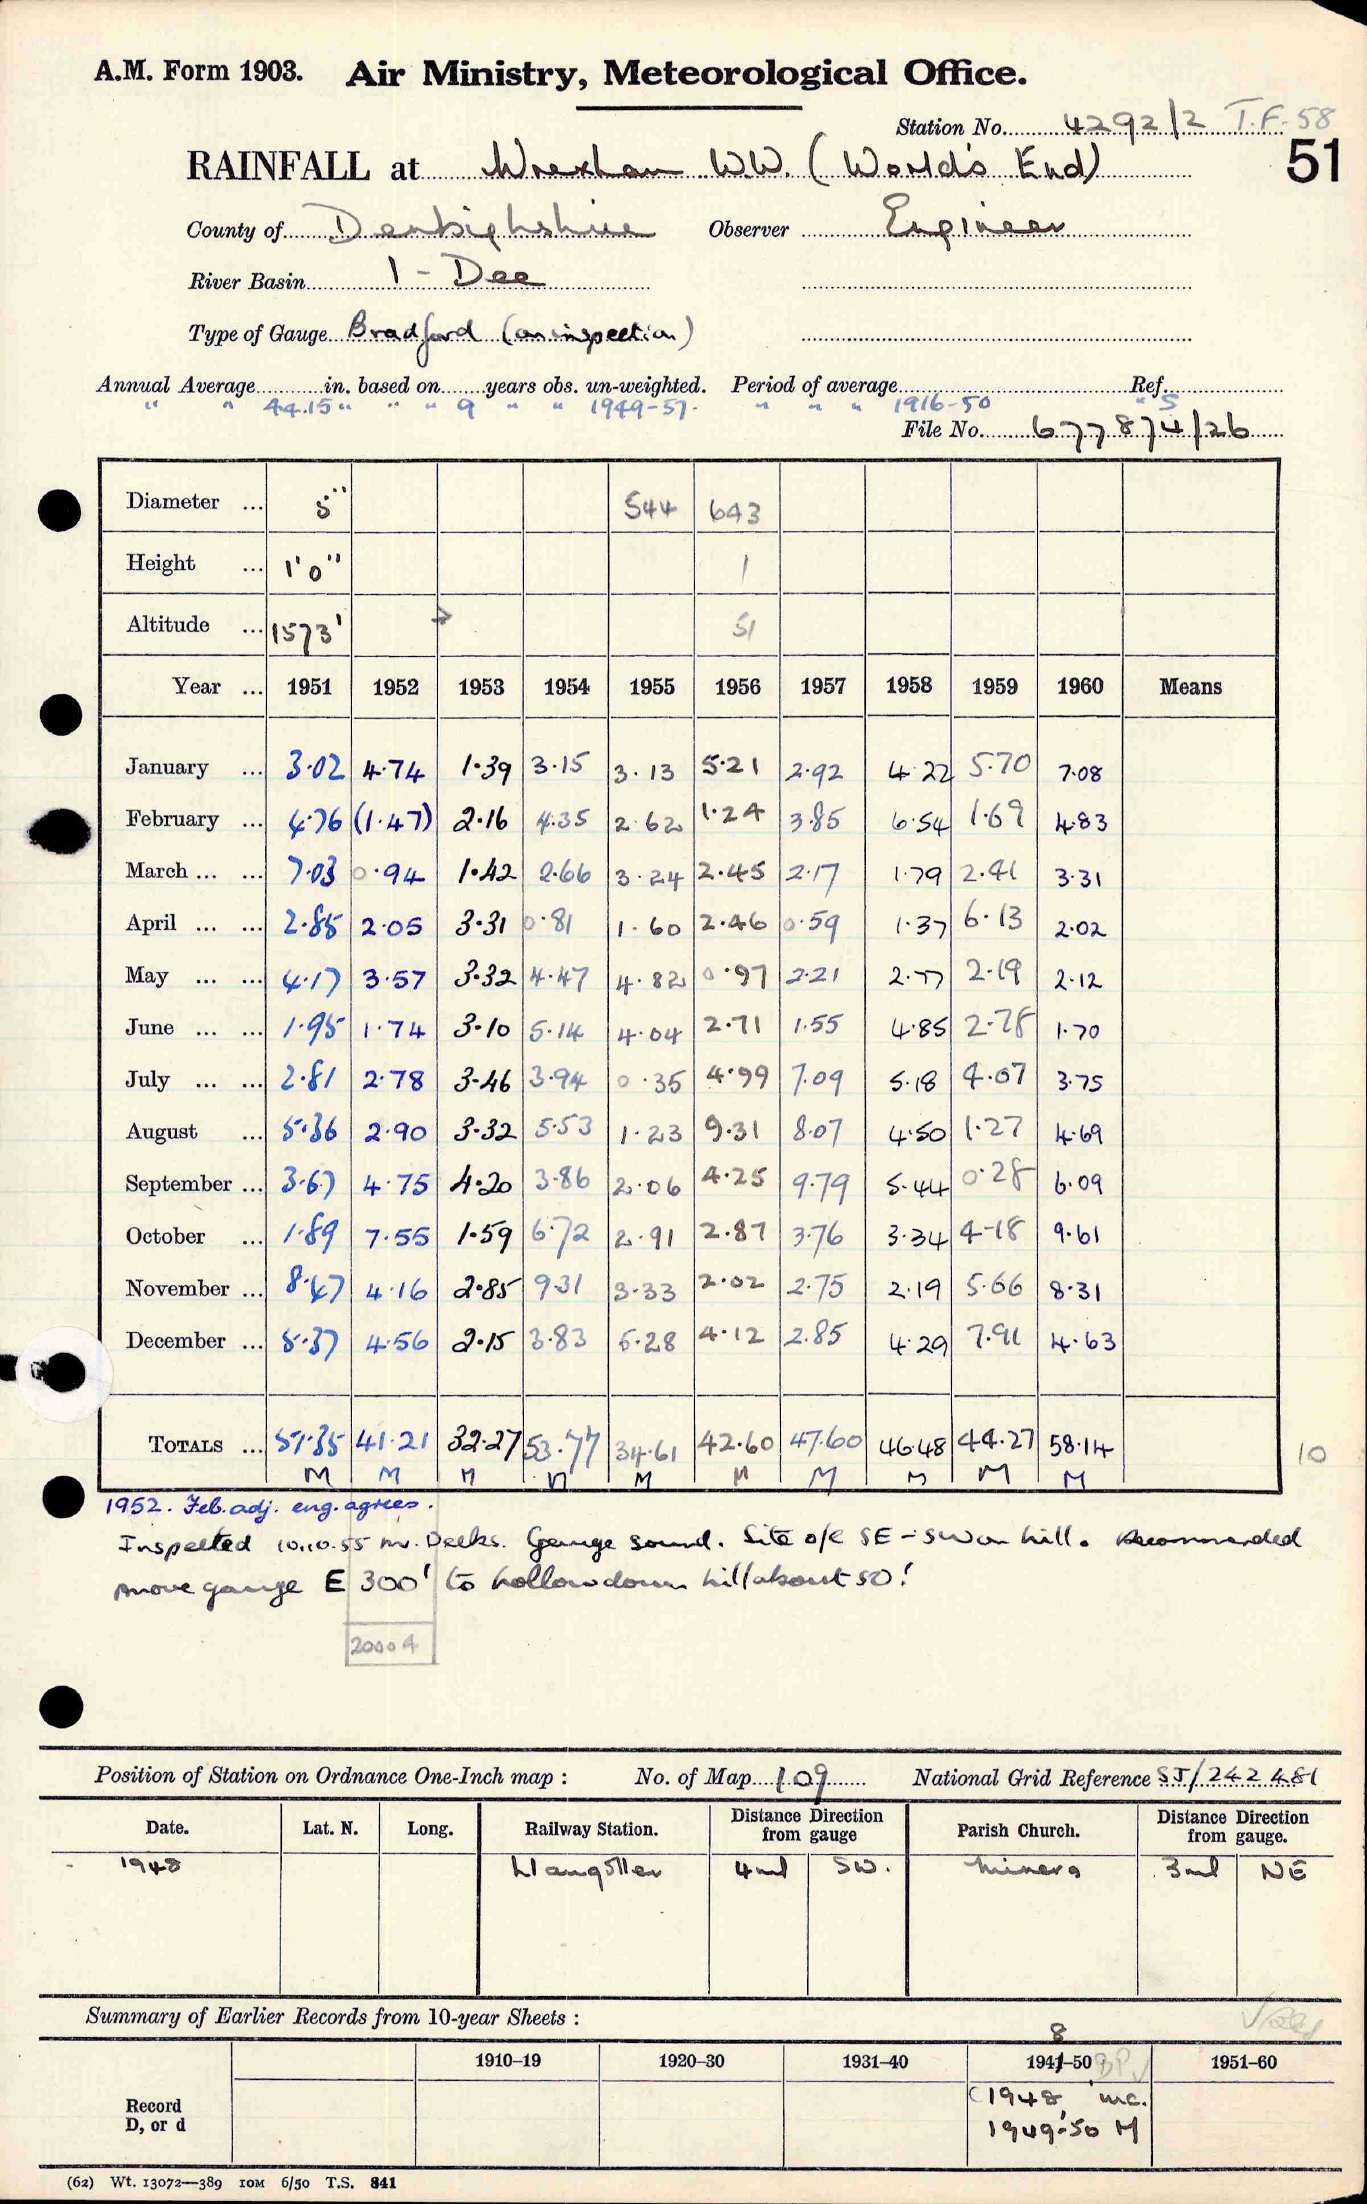 A.M. Form 1903. Air Ministry, Meteorological Office.
Station No. 4292/2 T.F. 58
RAINFALL at Wrexham W.W. (World's End) 51
County of Denbighshire Observer Engineer
River Basin 1 - Dee
Type of Gauge Bradford (on inspection)
Annual Average in. based on years obs. un-weighted. Period of average Ref.
" " 44.15 " " " 9 " " 1949-57. " " " 1916-50 " S
File No. 677874/26
Diameter ... 5" 544 643
Height ... 1'0" 1
Altitude ... 1573' 51
Year ... 1951 1952 1953 1954 1955 1956 1957 1958 1959 1960 Means
January ... 3.02 4.74 1.39 3.15 3.13 5.21 2.92 4.22 5.70 7.08
February ... 4.76 (1.47) 2.16 4.35 2.62 1.24 3.85 6.54 1.69 4.83
March ... ... 7.03 0.94 1.42 2.66 3.24 2.45 2.17 1.79 2.41 3.31
April ... ... 2.85 2.05 3.31 0.81 1.60 2.46 0.59 1.37 6.13 2.02
May ... ... 4.17 3.57 3.32 4.47 4.82 0.97 2.21 2.77 2.19 2.12
June ... ... 1.95 1.74 3.10 5.14 4.04 2.71 1.55 4.85 2.78 1.70
July ... ... 2.81 2.78 3.46 3.94 0.35 4.99 7.09 5.18 4.07 3.75
August ... 5.36 2.90 3.32 5.53 1.23 9.31 8.07 4.50 1.27 4.69
September ... 3.67 4.75 4.20 3.86 2.06 4.25 9.79 5.44 0.28 6.09
October ... 1.89 7.55 1.59 6.72 2.91 2.87 3.76 3.34 4.18 9.61
November ... 8.47 4.16 2.85 9.31 3.33 2.02 2.75 2.19 5.66 8.31
December ... 5.37 4.56 2.15 3.83 5.28 4.12 2.85 4.29 7.91 4.63
TOTALS ... 51.35 41.21 32.27 53.77 34.61 42.60 47.60 46.48 44.27 58.14 10
M M M M M M M M M M
1952. Feb. adj. eng. agrees.
Inspected 10.10.55 Mr. Deeks. Gauge sound. Site o/e SE - SW on hill. Recommended
move gauge E 300' to hollow down hill about 50'.
20004
Position of Station on Ordnance One-Inch map : No. of Map 109 National Grid Reference SJ/242481
Date. Lat. N. Long. Railway Station. Distance Direction from gauge Parish Church. Distance Direction from gauge.
1948 Llangollen 4ml SW. Minera 3ml NE
Summary of Earlier Records from 10-year Sheets :
8
1910–19 1920–30 1931–40 1941–50 BP 1951–60
Record
D, or d
(1948, inc.
1949-50 M
(62) Wt. 13072—389 10M 6/50 T.S. 841